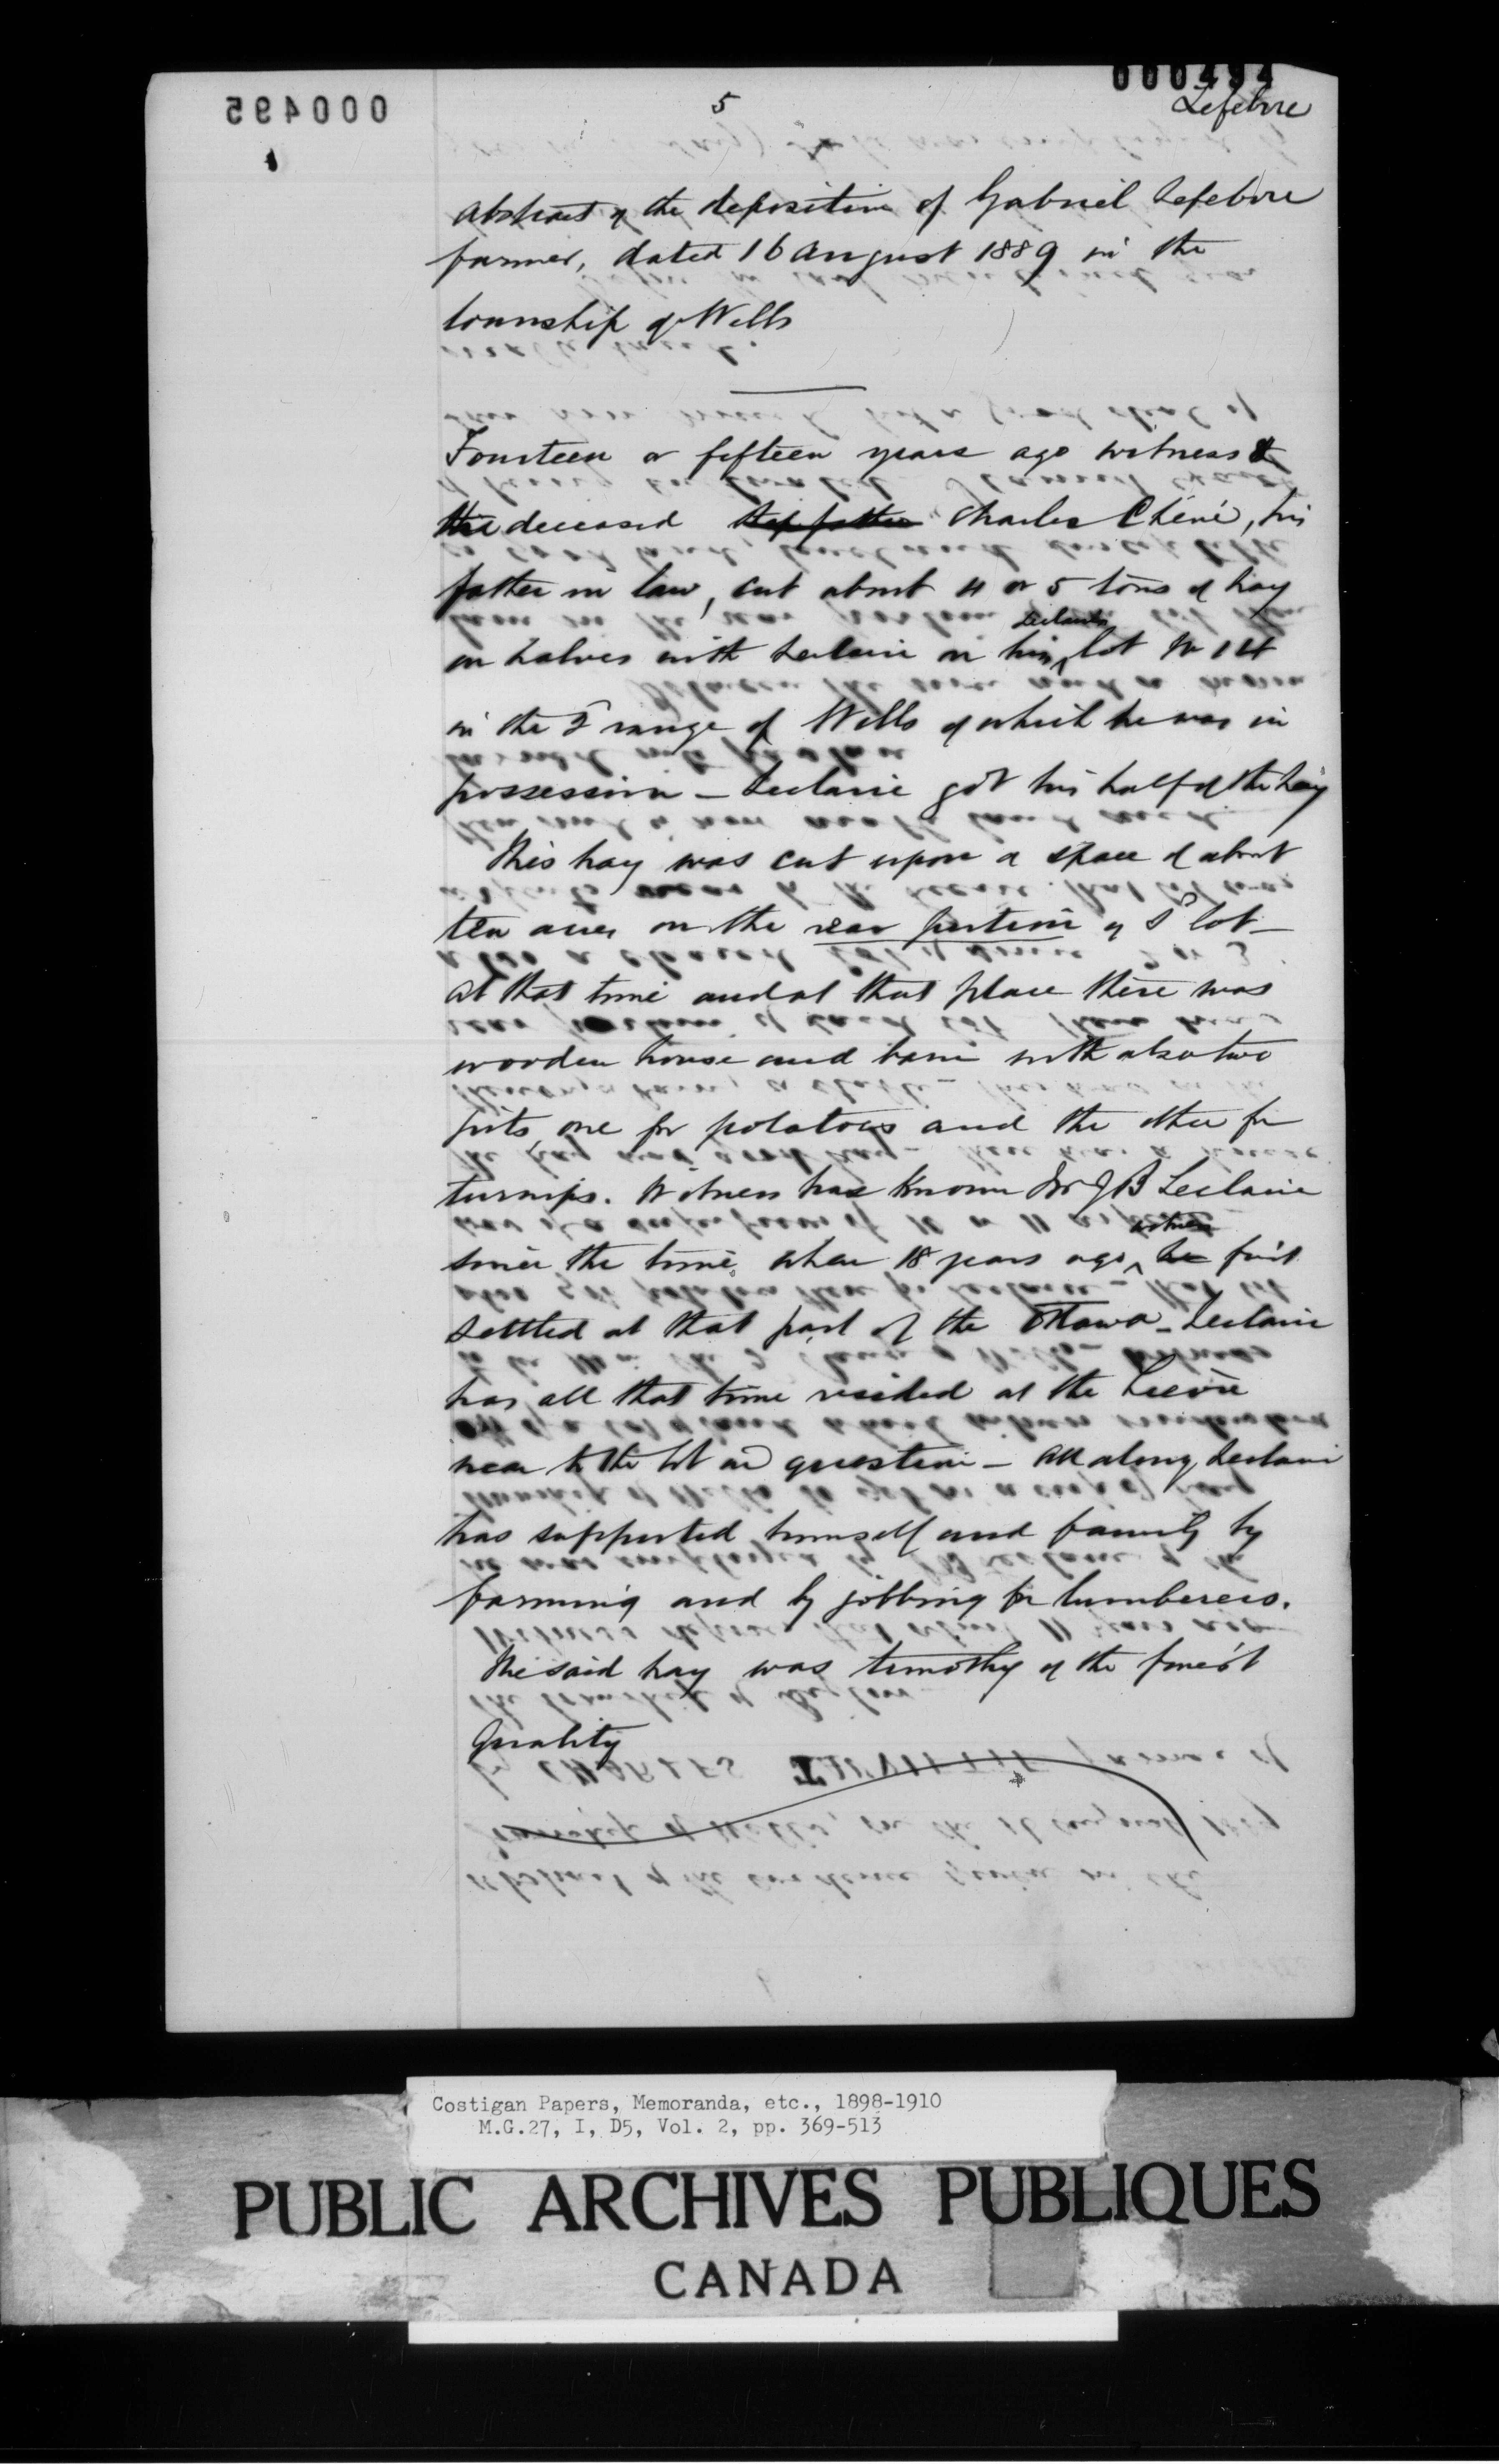 000494
000495
5
Lefebvre
Abstract of the deposition of Gabriel Lefebvre
farmer, dated 16 August 1889 in the
township of Wells
Fourteen or fifteen years ago witness &
the deceased step father Charles Chéné, his
father in law, cut about 4 or 5 tons of hay
on halves with Leclaire on his Leclaire's lot No 14
in the 2 range of Wells of which he was in
possession - Leclaire got his half of the hay
This hay was cut upon a space of about
ten acres on the rear portion of sd lot -
At that time and at that place there was
wooden house and barn with also two
pits, one for potatoes and the other for
turnips. Witness has known Mr J B Leclaire
since the time when 18 years ago, he witness first
settled at that part of the Ottawa - Leclaire
has all that time resided at the Lièvre
near to the lot in question - All along Leclaire
has supported himself and family by
farming and by jobbing for lumberers.
The said hay was timothy of the finest
quality
Costigan Papers, Memoranda, etc., 1898-1910
M.G.27, I, D5, Vol. 2, pp. 369-513
PUBLIC ARCHIVES PUBLIQUES
CANADA